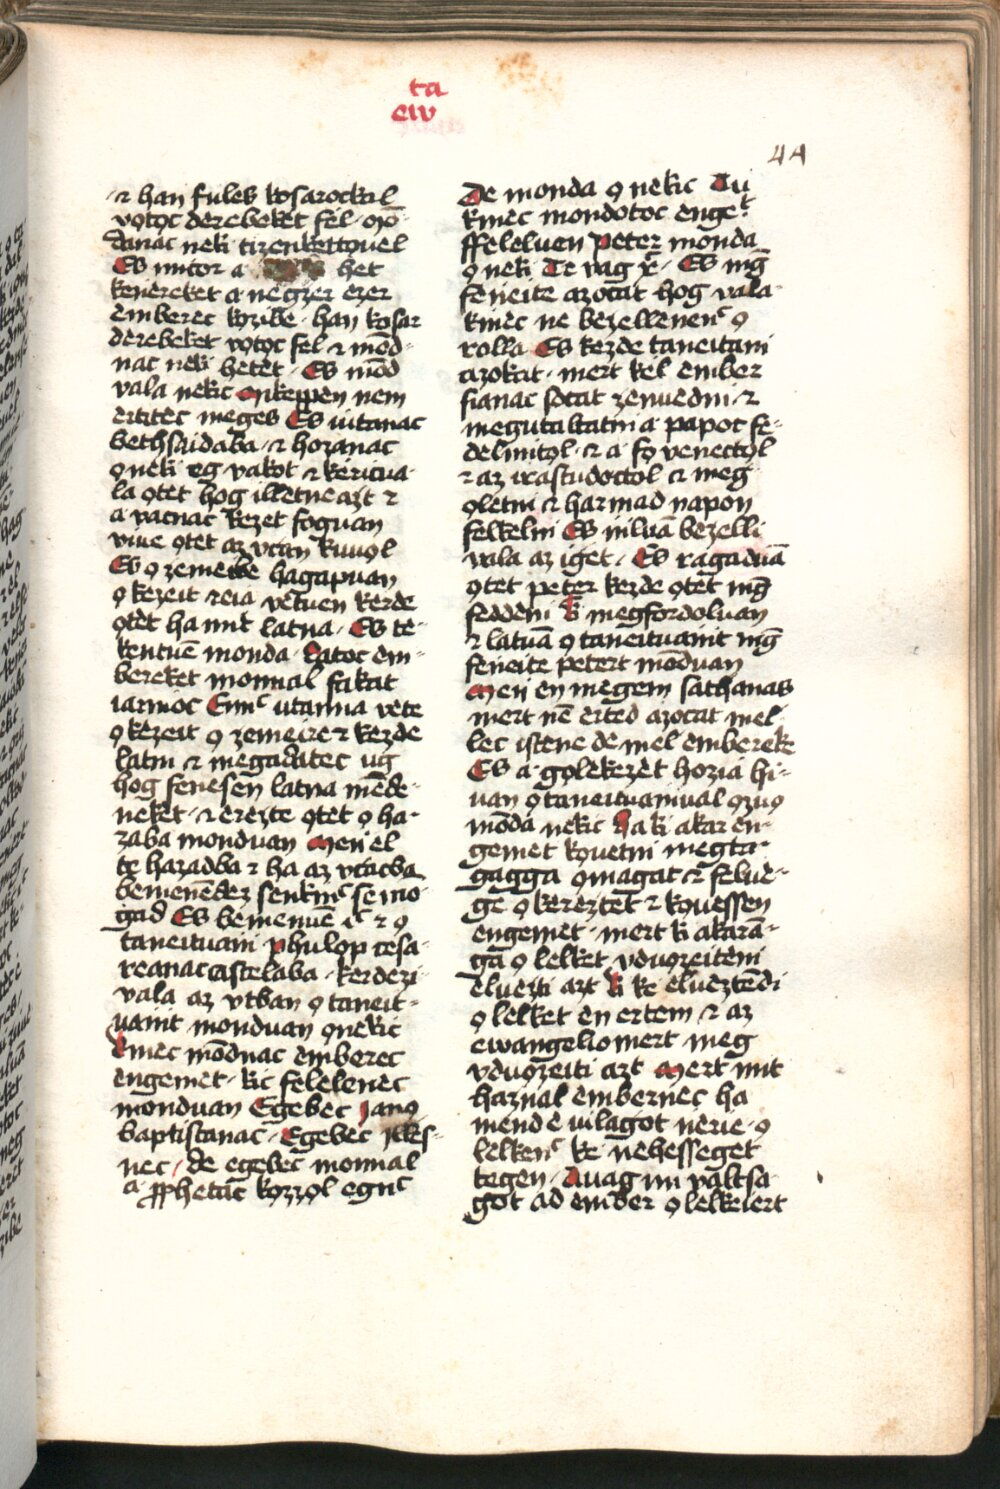 ta
ew
44
⁊ han fules kosarockal
votoc derebeket fel · mo̅
danac neki tizenkettovel
Es micor a het
keńereket a negzer ezer
emberec kozibe · han kosar
derebeket votoc fel ⁊ mo̅d
nac neki hetet · Es mo̅d
vala nekic Mikeppen nem
ertitec meges Es iutanac
bethsaidaba · ⁊ hozanac
o neki eg vakot ⁊ kericua
la otet hog illetne azt ⁊
a vacnac kezet foguan
vive otet az vcan kivvol
Es o zemebe hagapuan
o kezeit reia vetuen kerde
otet ha mit latna · Es te
kentue̅ monda · Latoc em
bereket monnal fakat
iarnioc Enneᶜ utanna vete
o kezeit o zemeire ⁊ kezde
latni ⁊ megadatec ug
hog feńesen latna me̅de
neket · ⁊ erezte otet o ha
zaba monduan Meń el
te hazadba ⁊ ha az vcacba
bemenendez senkineᶜ se mo̅
gad Es bemenue̅ ic ⁊ o
tańeituani philop cesa
reanac castelaba · kerdezi
vala az vtban o tańeit
uańit monduan o nekic
Kinec mo̅dnac emberec
engemet · kic felelenec
monduan Egebec Janos
baptistanac · Egebec Illes
nec / de egebec monnal
a p̅phetac kozzol egneᶜ
De monda o nekic Tu
kinec mondotoc engeᵗ
ffeleluen peter monda
o neki Te vag x̅ · Es mg̅
feńeite azocat hog vala
kinec ne bezellenenᶜ o
rolla Es kezde tańeitani
azokat · mert kel ember
fianac socat zenuedni ⁊
megutaltatni a papoc fe
delmitol · ⁊ a fo venectol
⁊ az irastudoctol ⁊ meg
oletni ⁊ harmad napon
felkelni Es nilua̅ bezelli
vala az iget · Es ragadua̅
otet peter kezde otet mg̅
feddeni Ki megfordoluan
⁊ latua̅ o tańeituańit mg̅
feńeite petert mo̅duan
Meń en megem sathanas
mert ne̅ erted azocat mel
lec istene de mel embereke
Es a golekezet hozia hi
uan o tańeituańiual ozuo
mo̅da nekic Ha ki akar en
gemet kouetni megta
gagga omagat ⁊ felue
ge o kereztet ⁊ kouessen
engemet · mert ki akara̅
ga o lelket vduozeiteni
elvezti azt ki ke elvezte̅di
o lelket en ertem ⁊ az
ewangeliomert meg
vduozeiti azt Mert mit
haznal embernec ha
mend e vilagot nerie · o
lelkenᶜ ke nehesseget
tegen · Auag mi valtsa
got ad ember o lelkeiert